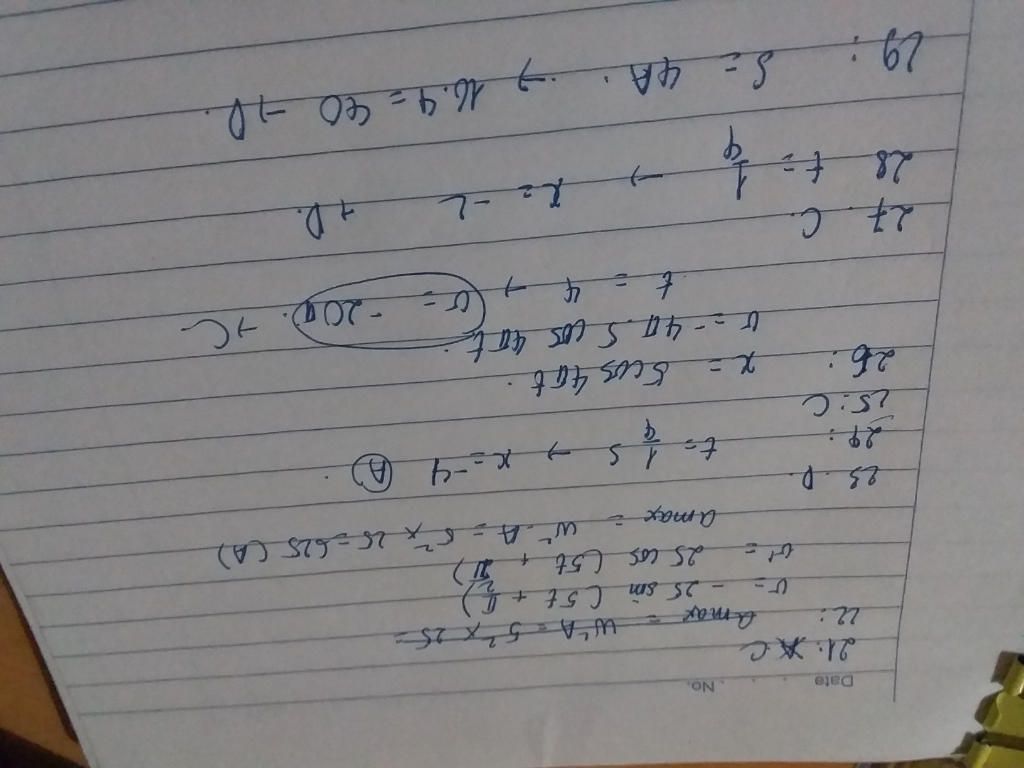 Date . . No.
21: C
22: amax = W²A = 5² x 25 =
v = - 25 sin (5t + π/2)
v = 25 cos (5t + )
amax = W². A = 5² x 25 = 625 (A)
23. D.
24: t = 1/4 s → x = -4 (A)
25: C
26: x = 5 cos 4πt.
v = -4π. 5 cos 4πt.
t = 4 → v = -20π. → C
27. C.
28 t = 1/4 → x = -2 → D.
29: S = 4A. → 16.4 = 40 → D.